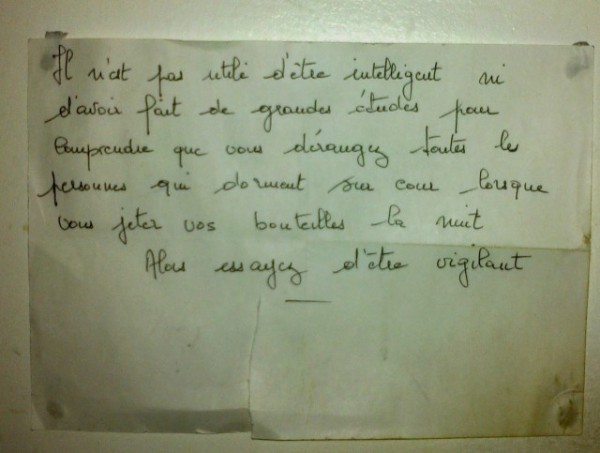 Il n'est pas utile d'être intelligent ni
d'avoir fait de grandes études pour
comprendre que vous dérangez toutes les
personnes qui dorment sur cour lorsque
vous jeter vos bouteilles la nuit
Alors essayez d'être vigilant